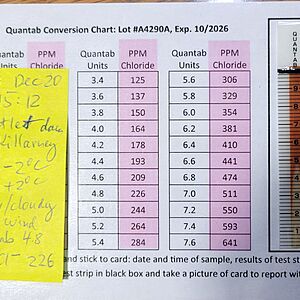 Quantab Conversion Chart: Lot #A4290A, Exp. 10/2026
Quantab Units PPM Chloride Quantab Units PPM Chloride Quantab Units PPM Chloride
3.4 125 5.6 306
3.6 137 5.8 329
3.8 150 6.0 354
4.0 164 6.2 381
4.2 178 6.4 410
4.4 193 6.6 441
4.6 209 6.8 474
4.8 226 7.0 511
5.0 244 7.2 550
5.2 264 7.4 593
5.4 284 7.6 641
and stick to card: date and time of sample, results of test st
est strip in black box and take a picture of card to report wi
Dec 20
5:12
-2°C
+2°C
/cloudy
wind
4.8
226
QUANTAB